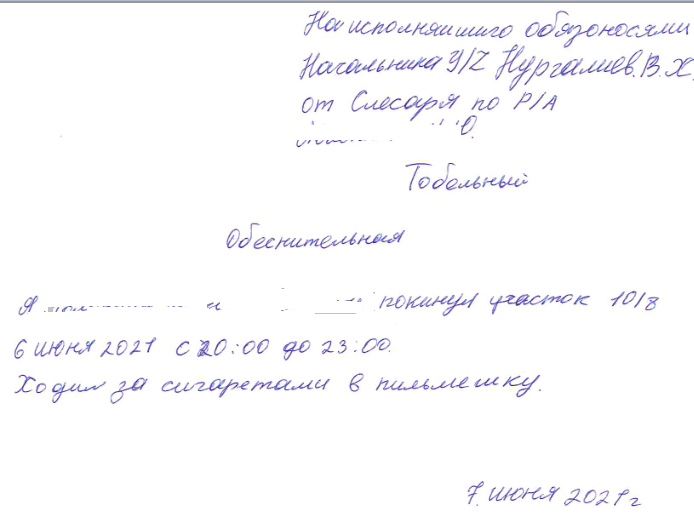 На исполняишиго обязоносями
Начальника У/Z Нургалиев.В.Х.
от Слесаря по Р/А
О.
Тобельный
Обеснительная
Я и покинул участок 10/8
6 июня 2021 с 20:00 до 23:00.
Ходил за сигаретами в пильмешку.
7. июня 2021г